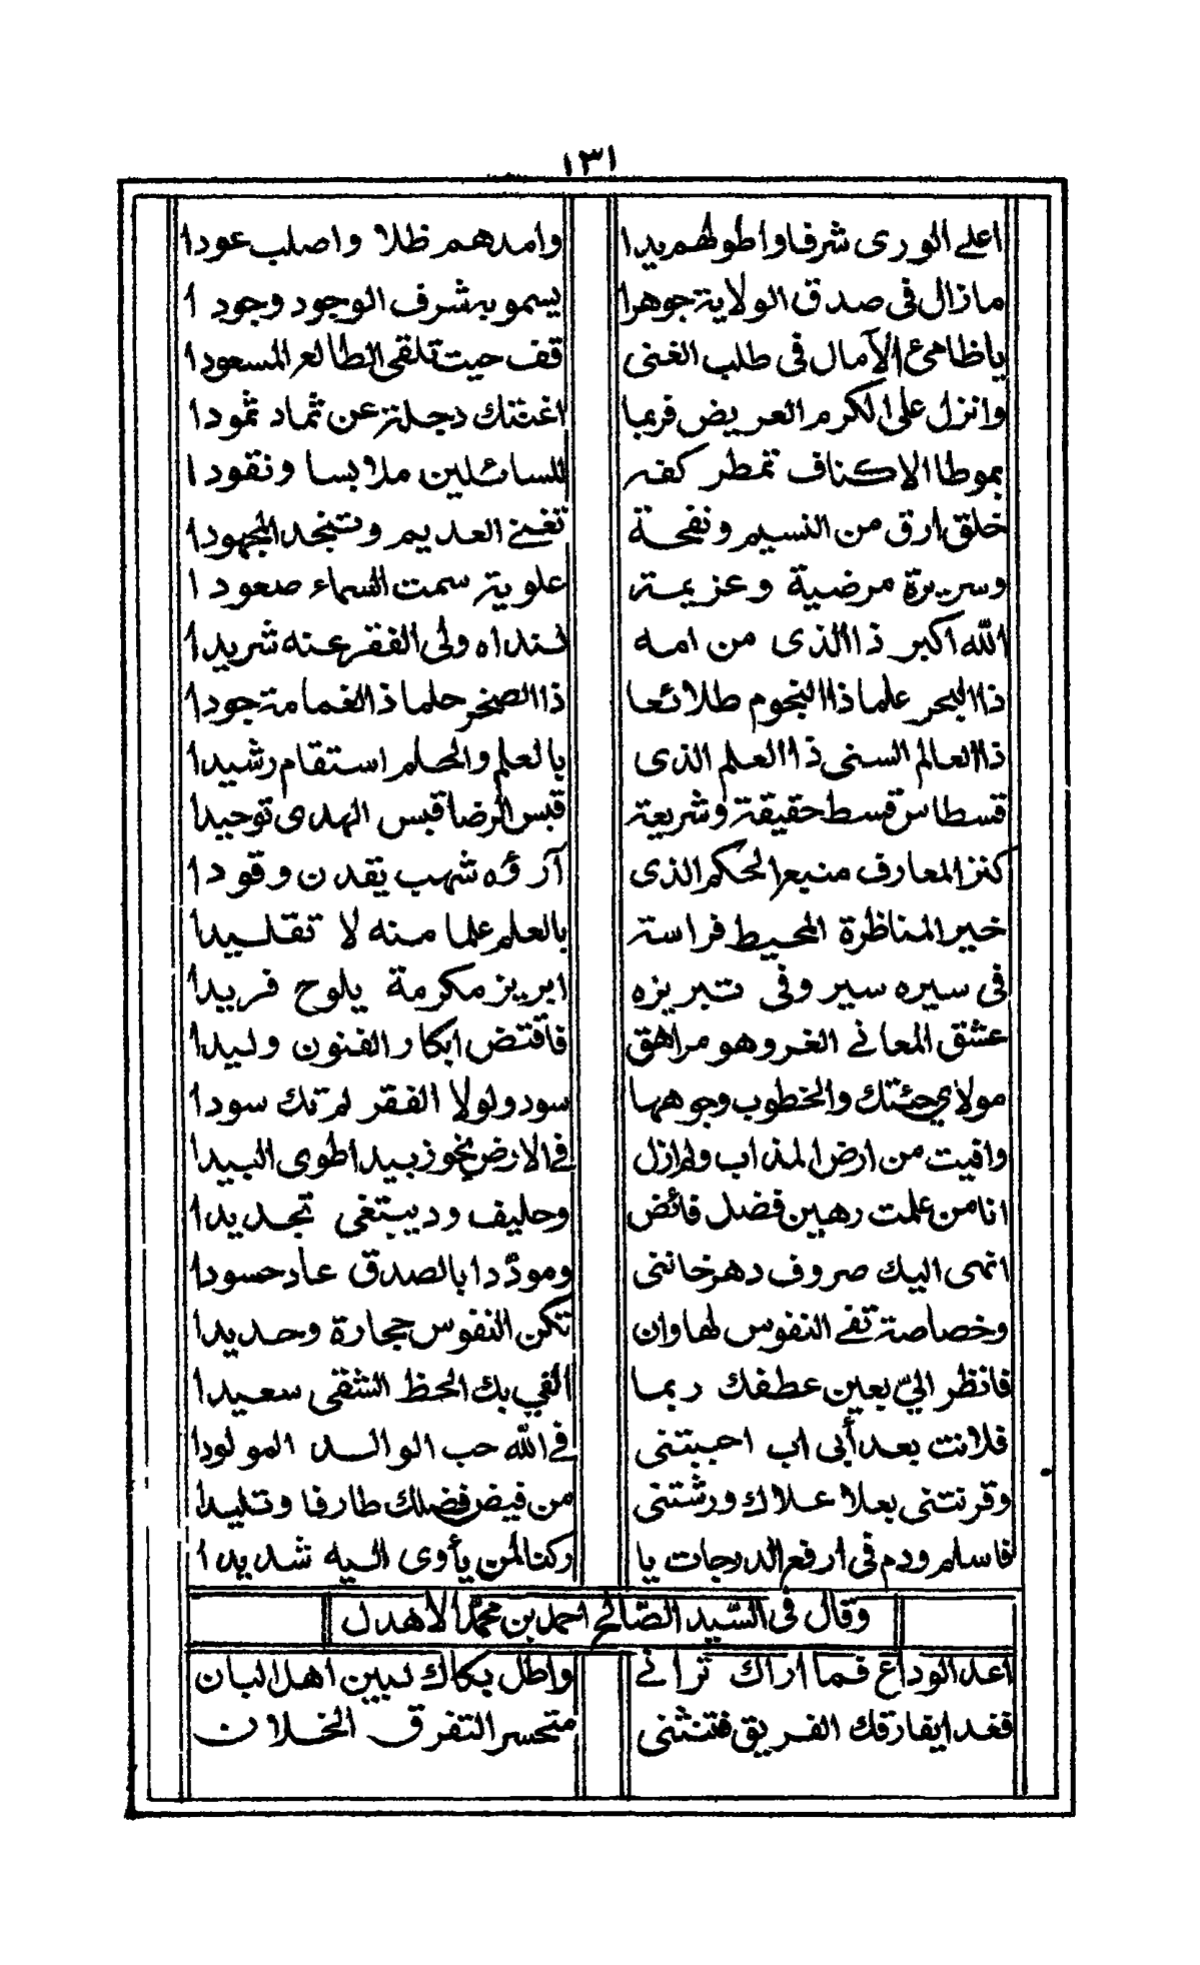 ١٣١
اعلى الورى شرفا واطولهم يدا وامدهم ظلا واصلب عودا
مازال فى صدق الولاية جوهرا يسمو به شرف الوجود وجودا
ياظامئ الآمال فى طلب الغنى قف حيت تلقى الطالع المسعودا
وانزل على الكرم العريض فربما اغنتك دجلة عن ثماد ثمودا
بموطا الاكناف تمطر كفه للسائلين ملابسا ونقودا
خلق ارق من النسيم ونفحة تغنى العديم وتنجد المجهودا
وسريرة مرضية وعزيمة علوية سمت السماء صعودا
الله اكبر ذا الذى من امه لنداه ولى الفقر عنه شريدا
ذا البحر علما ذا النجوم طلائعا ذا الصخر حلما ذا الغمامة جودا
ذا العالم السنى ذا العلم الذى بالعلم والحلم استقام رشيدا
قسطاس قسط حقيقة وشريعة قبس الرضا قبس الهدى توحيدا
كنز المعارف منبع الحكم الذى آرؤه شهب يقدن وقودا
خير المناظرة المحيط فراسة بالعلم علما منه لا تقليدا
فى سيره سير وفى تبريزه ابريز مكرمة يلوح فريدا
عشق المعانى الغر وهو مراهق فاقتض ابكار الفنون وليدا
مولاي جئتك والخطوب وجوهها سود ولولا الفقر لم تك سودا
وافيت من ارض المذاب ولم ازل فى الارض نحو زبيد اطوى البيدا
انا من علمت رهين فضل فائض وحليف ود يبتغى تجديدا
انهى اليك صروف دهر خاننى ومودّدا بالصدق عاد حسودا
وخصاصة تفے النفوس لها وان تكن النفوس حجارة وحديدا
فانظر اليّ بعين عطفك ربما الفي بك الحظ الشقى سعيدا
فلانت بعد أبى اب احببتنى فى الله حب الوالد المولودا
وقرنتنى بعلا علاك ورشتنى من فيض فضلك طارفا وتليدا
فاسلم ودم فى ارفع الدرجات يا ركنا لمن يأوى اليه شديدا
وقال فى السّيد الصّالح احمد بن محمّد الاهدل
اعد الوداع فما اراك ترانى واطل بكاك لبين اهل البان
فغدا يفارقك الفريق فتنثنى متحسر التفرق الخلان